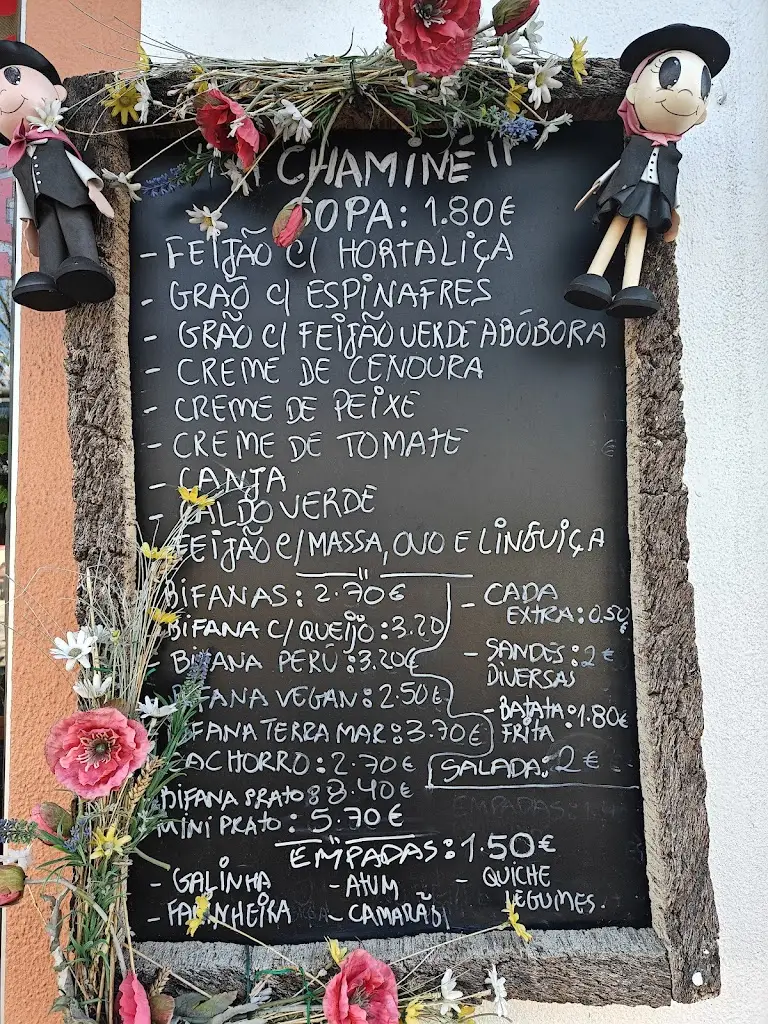 "CHAMINÉ"
SOPA: 1.80€
- FEIJÃO C/ HORTALIÇA
- GRÃO C/ ESPINAFRES
- GRÃO C/ FEIJÃO VERDE ABÓBORA
- CREME DE CENOURA
- CREME DE PEIXE
- CREME DE TOMATE
- CANJA
- CALDO VERDE
FEIJÃO C/MASSA, OVO E LINGUIÇA
BIFANAS: 2.70€
BIFANA C/ QUEIJO: 3.20
- BIFANA PERÚ: 3.20€
BIFANA VEGAN: 2.50€
BIFANA TERRA MAR: 3.70€
CACHORRO: 2.70€
BIFANA PRATO: 8.40€
MINI PRATO: 5.70€
- CADA
EXTRA: 0.50€
- SANDES: 2€
DIVERSAS
- BATATA: 1.80€
FRITA
SALADA: 2€
EMPADAS: 1.50€
- GALINHA - ATUM - QUICHE
- FARINHEIRA - CAMARÃO LEGUMES.